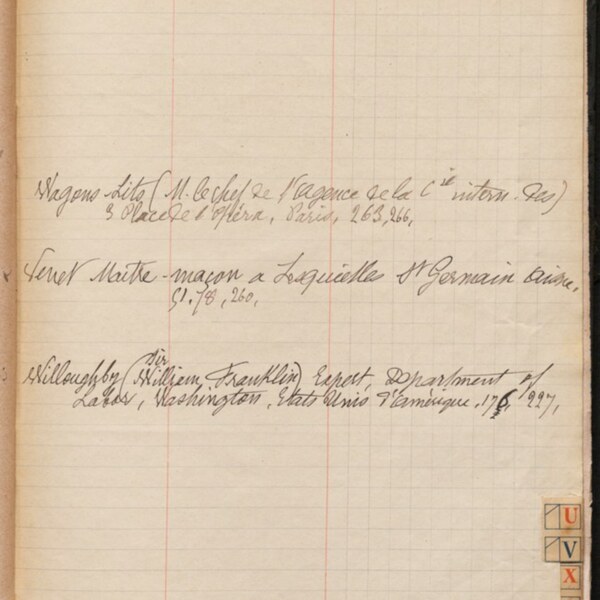 Wagons-Lits (M. le chef de l'agence de la Cie intern. des)
3 Place de l'Opéra, Paris, 263, 266,
Maître-maçon à Lesquielles St Germain Aisne,
51, 78, 260,
Willoughby (Sir William, Franklin) Expert, Department of
Labor, Washington, Etats Unis d'Amérique. 176, 227,
U
V
X